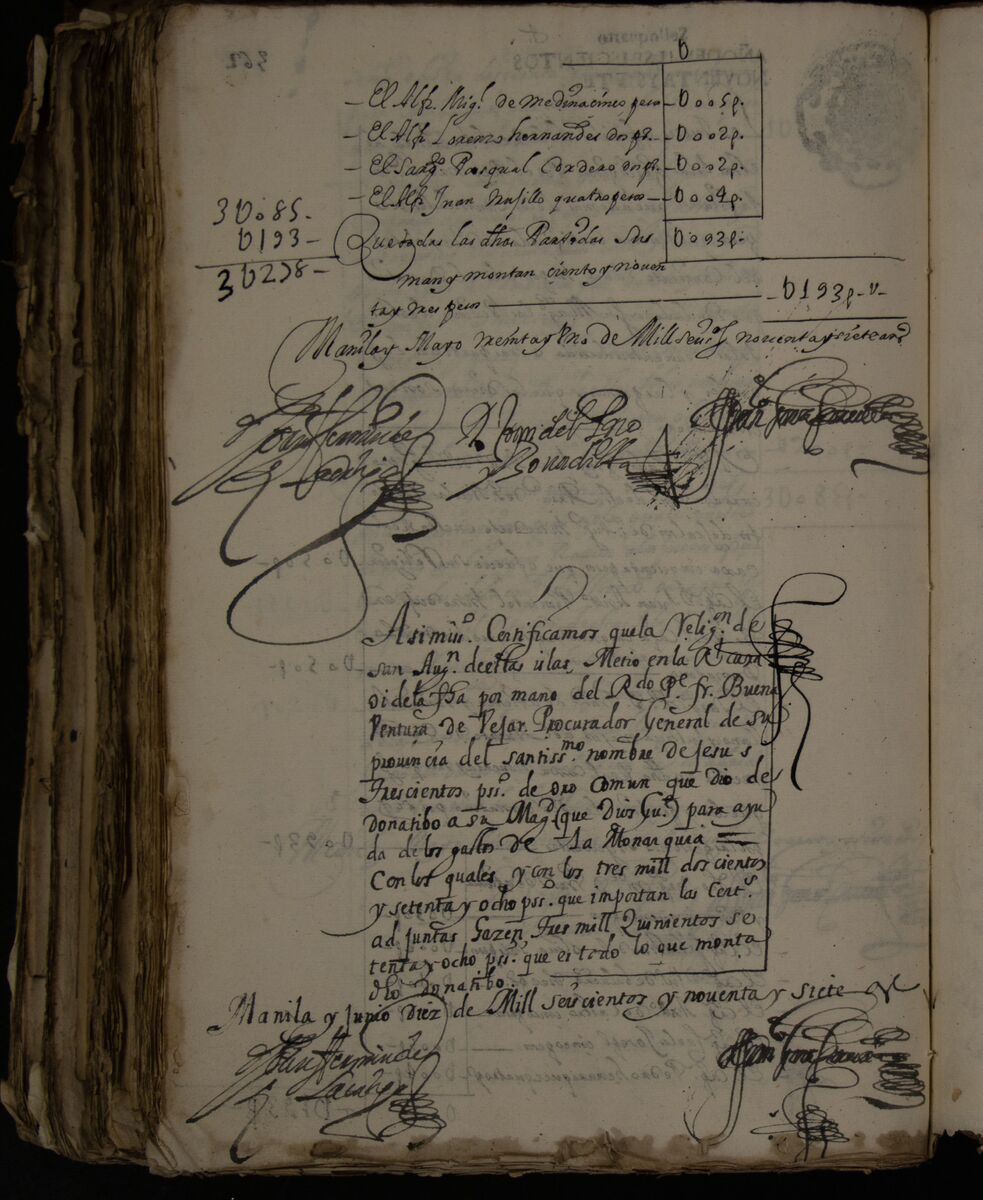 U
– El Alfz. Migl. de medina cinco pesos – U005p.
– El Alfz. Lorenzo hernandes dos ps. – U002p.
– El Sargto. Pasqual Cordero dos ps. – U002p.
– El Alfz. Juan trusillo quatro pesos – U004p.
3U085.
U193 –
3U278 –
Que todas las dhas Partidas Su U093p.
man y montan ciento y noven
ta y tres pesos – U193p.
Manila y Mayo treinta y Uno de Mill seisos. noventa y siete as.
Juan Hernandez
y Bovadilla
Asimismo. Certificamos que la Religon. de
san Augn. de estas islas, Metio en la Rl caxa
oi dela fha por mano del Rdo Pe. fr. Buena
Ventura de Vejar. Procurador General de su
provincia del santissmo. nombre de Jesus
Trescientos pss. de oro comun que dio de
donatibo a su Magd. (que Dios Gue.) para ayu
da de los gastos de la Monarquia =
Con los quales y con los tres mill doscientos
y setenta y ocho pss. que importan las Certs.
adjuntas hazen, Tres mill Quinientos se
tenta y ocho pss. que es todo lo que monta
dho Donatibo.
Manila y Junio Diez de Mill seiscientos y noventa y siete as
Juan Hernandez